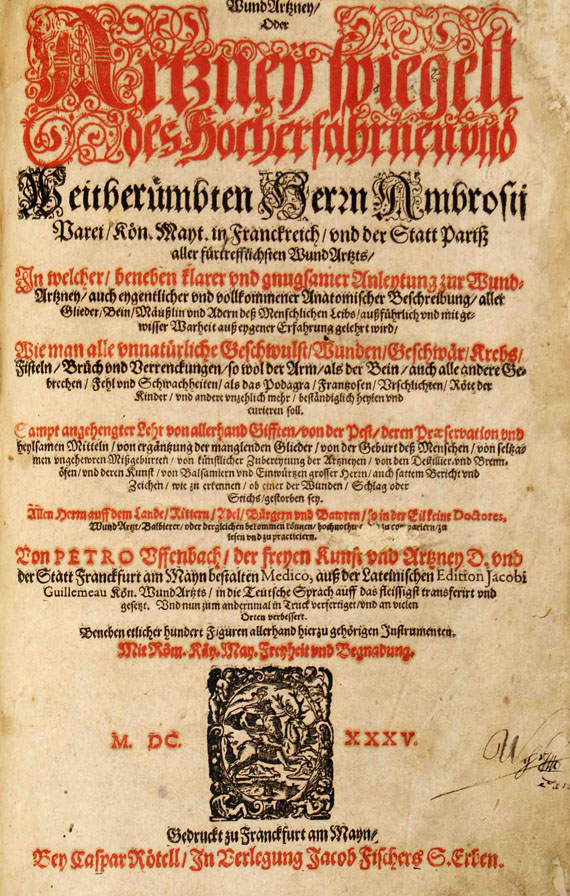 Wund Artzney/
Oder
Artzney spiegell
des Hocherfahrnen vnd
Weitberümbten Herrn Ambrosij
Parei/ Kön. Mayt. in Franckreich/ vnd der Statt Pariß
aller fürtrefflichsten Wund Artzts/
In welcher/ beneben klarer vnd gnugsamer Anleytung zur Wund-
Artzney/ auch eygentlicher vnd vollkommener Anatomischer Beschreibung/ aller
Glieder/ Bein/ Mäußlin vnd Adern deß Menschlichen Leibs/ außführlich vnd mit ge-
wisser Warheit auß eygener Erfahrung gelehrt wird/
Wie man alle vnnatürliche Geschwulst/ Wunden/ Geschwär/ Krebs/
Fisteln/ Brüch vnd Verrenckungen/ so wol der Arm/ als der Bein/ auch alle andere Ge-
brechen/ Fehl vnd Schwachheiten/ als das Podagra/ Frantzosen/ Vrschlichten/ Röte der
Kinder/ vnd andere vnzehlich mehr/ beständiglich heylen vnd
curieren soll.
Sampt angehengter Lehr von allerhand Gifften/ von der Pest/ deren Præservation vnd
heylsamen Mitteln/ von ergäntzung der manglenden Glieder/ von der Geburt deß Menschen/ von seltza-
men vngehewren Mißgeburten/ von künstlicher Zubereytung der Artzneyen/ von den Destillier vnd Brenn-
öfen/ vnd deren Kunst/ von Balsamiern vnd Einwürtzen grosser Herrn/ auch sattem Bericht vnd
Zeichen/ wie zu erkennen/ ob einer der Wunden/ Schlag oder
Stichs/ gestorben sey.
Allen Herrn auff dem Lande/ Rittern/ Adel/ Bürgern vnd Bawren/ so in der Eil keine Doctores,
Wund Artzt/ Balbierer/ oder dergleichen bekommen können/ zu
lesen vnd zu practicieren.
Von PETRO Vffenbach/ der freyen Kunst vnd Artzney D. vnd
der Statt Franckfurt am Mayn bestalten Medico, auß der Lateinischen Edition Jacobi
Guillemeau Kön. Wund Artzts/ in die Teutsche Sprach auff das fleissigst transferirt vnd
gesetzt. Vnd nun zum andernmal in Truck verfertiget/ vnd an vielen
Orten verbessert.
Beneben etlicher hundert Figuren allerhand hierzu gehörigen Instrumenten.
Mit Röm. Käy. May. Freyheit vnd Begnadung.
M. DC. XXXV.
Gedruckt zu Franckfurt am Mayn/
Bey Caspar Rötell/ In Verlegung Jacob Fischers S. Erben.